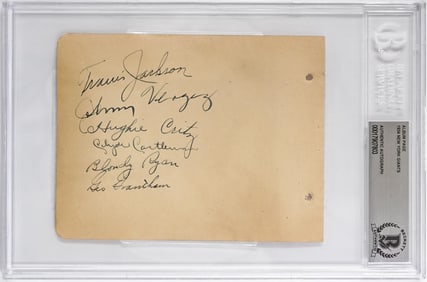 Travis Jackson
Johnny Vergez
Hughie Critz
Clyde Castleman
Blondy Ryan
Geo Grantham
ALBUM PAGE
1934 NEW YORK GIANTS
AUTHENTIC AUTOGRAPH
BECKETT